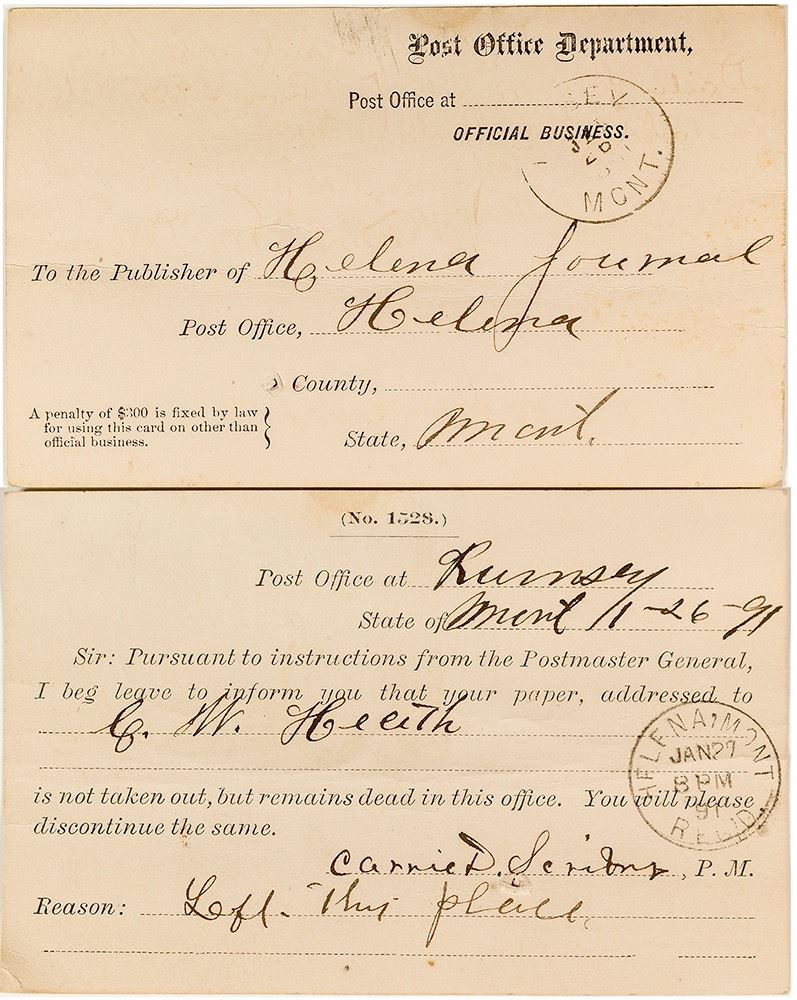 Post Office Department,
Post Office at
EY
JAN
26
MONT.
OFFICIAL BUSINESS.
To the Publisher of Helena Journal
Post Office, Helena
County,
A penalty of $300 is fixed by law
for using this card on other than
official business.
State, Mont.
(No. 1528.)
Post Office at Rumsey
State of Mont 1-26-91
Sir: Pursuant to instructions from the Postmaster General,
I beg leave to inform you that your paper, addressed to
C. W. Heath
HELENA, MONT
JAN 27
8 PM
91
REC'D.
is not taken out, but remains dead in this office. You will please
discontinue the same.
Carrie D. Scribnr, P. M.
Reason: Left. This place.